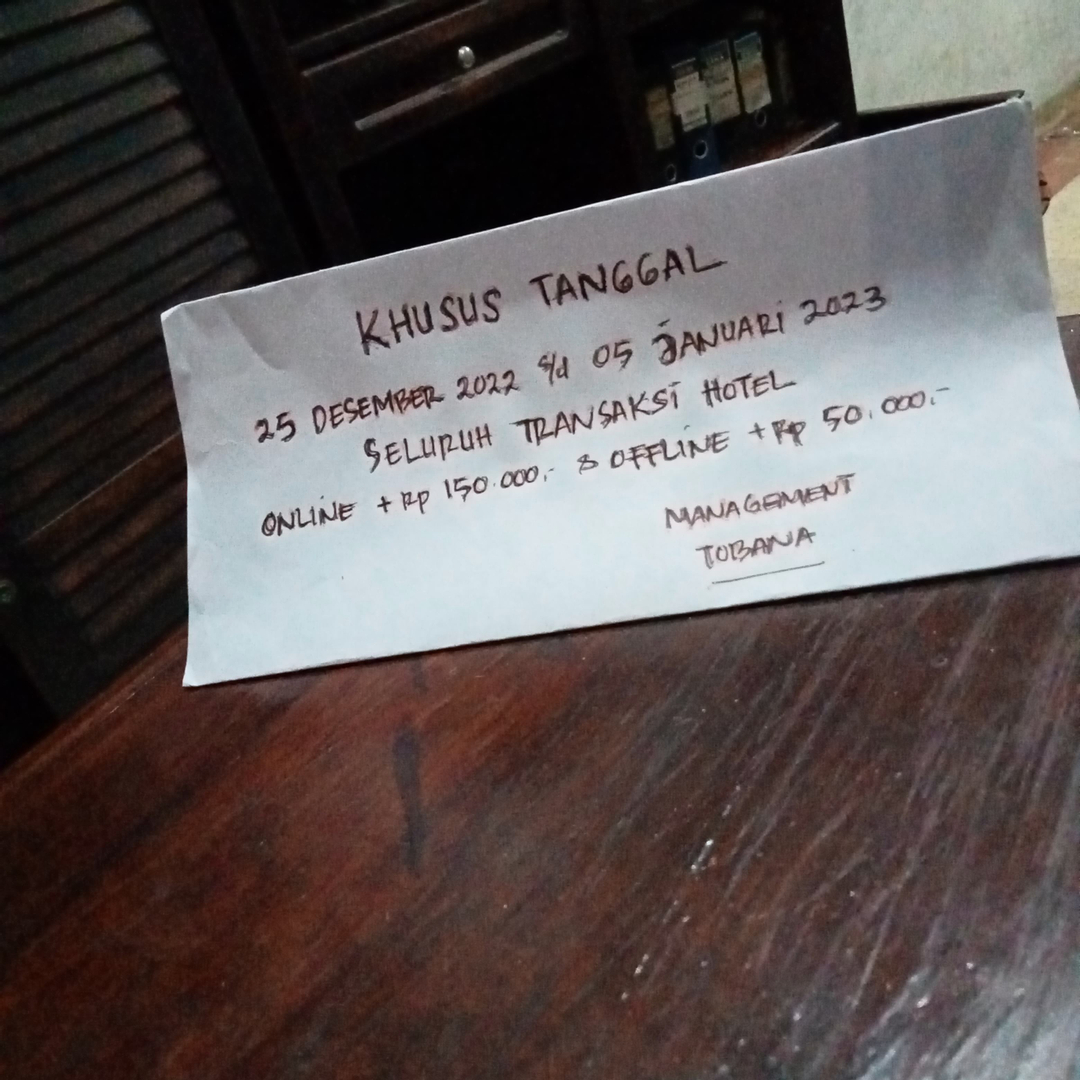 KHUSUS TANGGAL
25 DESEMBER 2022 s/d 05 JANUARI 2023
SELURUH TRANSAKSI HOTEL
ONLINE + Rp 150.000,- & OFFLINE + Rp 50.000,-
MANAGEMENT
TOBANA